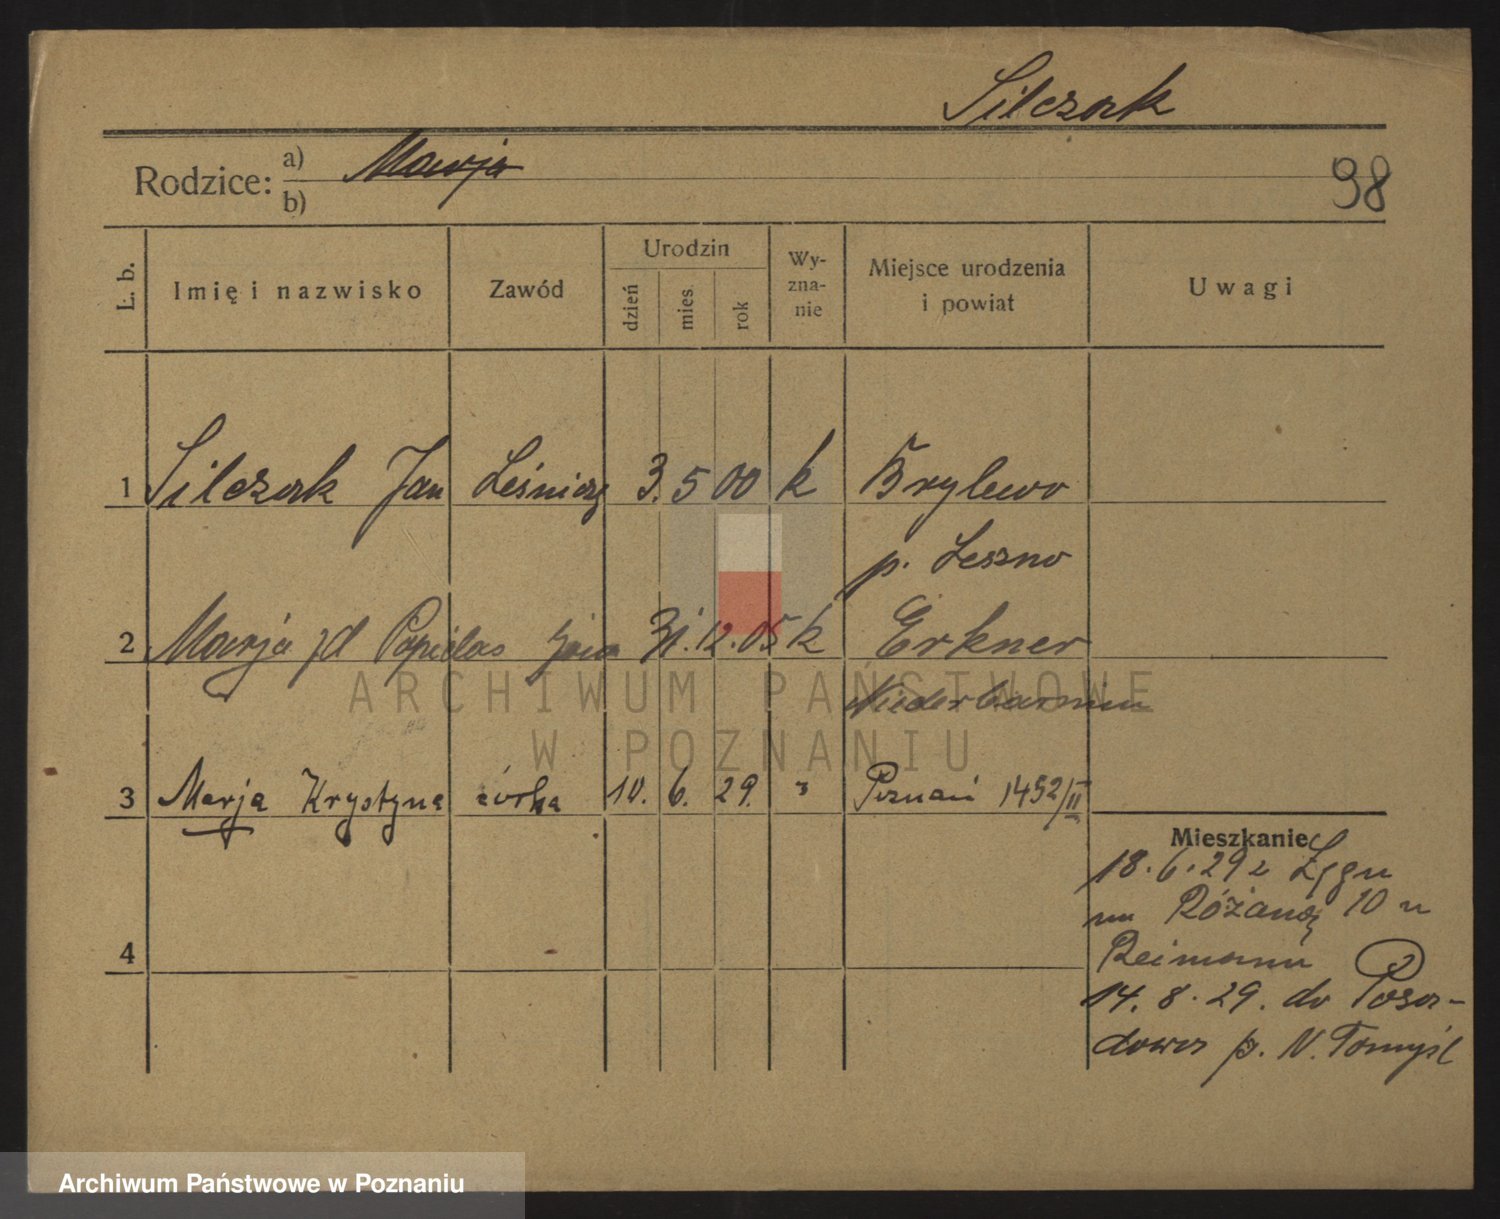 Silczak
Rodzice: a) Marja
b)
98
L. b. Imię i nazwisko Zawód Urodzin dzień mies. rok Wy-zna-nie Miejsce urodzenia i powiat Uwagi
1 Silczak Jan Leśniczy 3. 5 00 k Brylewo
p. Leszno
2 Marja zd Papielas żona 31. 12. 05 k Erkner
Niederbarnim
3 Marja Krystyna córka 10. 6. 29. " Poznań 1452/II
Mieszkanie
18. 6. 29 z
Różana 10 u
Reimann
4
14. 8. 29. do Posa-
dowa p. N. Tomyśl
ARCHIWUM PAŃSTWOWE
W POZNANIU
Archiwum Państwowe w Poznaniu